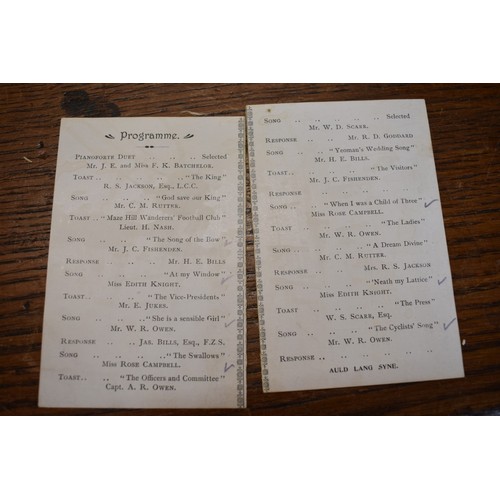 Programme.
Pianoforte Duet .. .. .. Selected
Mr. J. E. and Miss F. K. Batchelor.
Toast .. .. .. .. "The King"
R. S. Jackson, Esq., L.C.C.
Song .. .. .. "God save our King"
Mr. C. M. Rutter.
Toast .. "Maze Hill Wanderers' Football Club"
Lieut. H. Nash.
Song .. .. .. "The Song of the Bow"
Mr. J. C. Fishenden.
Response .. .. .. Mr. H. E. Bills
Song .. .. .. .. "At my Window"
Miss Edith Knight.
Toast .. .. .. "The Vice-Presidents"
Mr. E. Jukes.
Song .. .. .. "She is a sensible Girl"
Mr. W. R. Owen.
Response .. .. Jas. Bills, Esq., F.Z.S.
Song .. .. .. .. "The Swallows"
Miss Rose Campbell.
Toast .. .. "The Officers and Committee"
Capt. A. R. Owen.
Song .. .. .. .. .. Selected
Mr. W. D. Scarr.
Response .. .. .. Mr. R. D. Goddard
Song .. .. .. "Yeoman's Wedding Song"
Mr. H. E. Bills.
Toast .. .. .. .. "The Visitors"
Mr. J. C. Fishenden.
Response .. .. .. .. .. ..
Song .. .. "When I was a Child of Three"
Miss Rose Campbell.
Toast .. .. .. .. "The Ladies"
Mr. W. R. Owen.
Song .. .. .. .. "A Dream Divine"
Mr. C. M. Rutter.
Response .. .. .. Mrs. R. S. Jackson
Song .. .. .. .. "'Neath my Lattice"
Miss Edith Knight.
Toast .. .. .. .. .. "The Press"
W. S. Scarr, Esq.
Song .. .. .. .. "The Cyclists' Song"
Mr. W. R. Owen.
Response .. .. .. .. .. ..
AULD LANG SYNE.